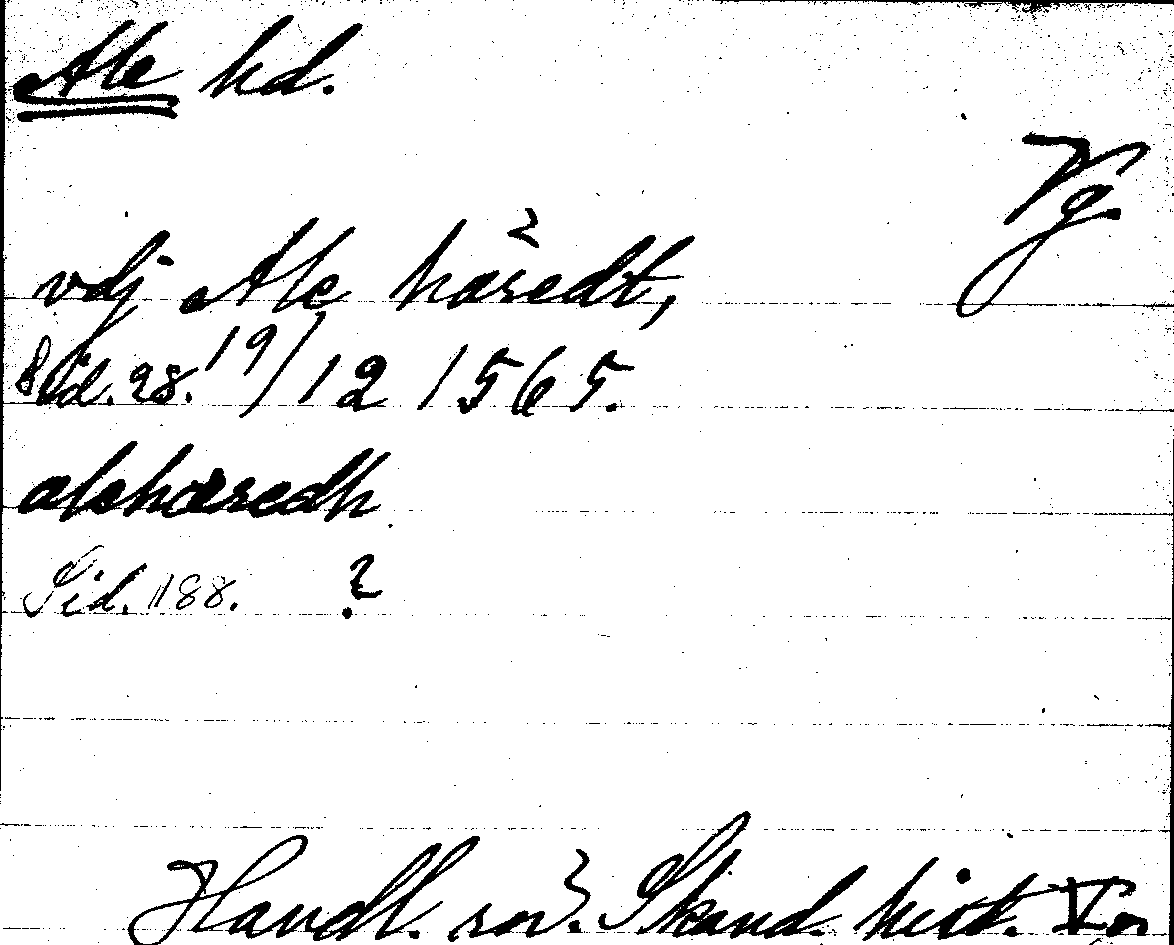 Ale hd.
Vg.
vdj Ale häredt,
Sid. 28. 19/12 1565.
alehæredh
Sid. 188. ?
Handl. rör. Skand. hist.